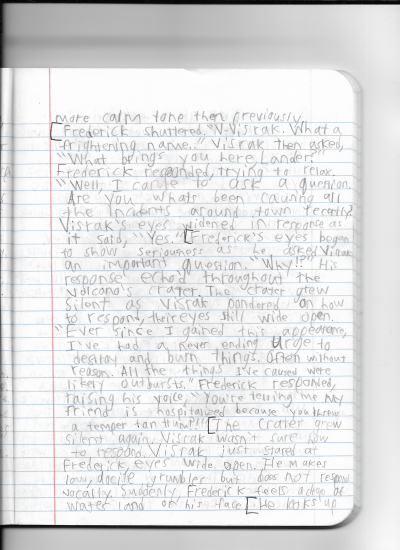 more calm tone then previously.
[Frederick shuttered, "V-Visrak. What a
frightening name." Visrak then asked,
"What brings you here Lander?"
Frederick responded, trying to relax.
"Well, I came to ask a question.
Are you whats been causing all
the incidents around town recently?
Visrak's eyes widened in response as
it said, "Yes." [Frederick's eyes began
to show seriousness as he asked Visrak
an important question. "Why!?" His
response echo'd throughout the
Volcano's crater. The crater grew
silent as Visrak pondered on how
to respond, their eyes still wide open.
"Ever since I gained this appearance,
I've had a never ending urge to
destroy and burn things. Often without
reason. All the things I've caused were
likely outbursts." Frederick responded,
raising his voice, "You're telling me my
friend is hospitalized because you threw
a temper tantrum!!" [The crater grew
silent again. Visrak wasn't sure how
to respond. Visrak just stared at
Frederick, eyes wide open. He makes
low, docile grumbles but does not respond
vocally. Suddenly, Frederick feels a drop of
water land on his face. [He looks up